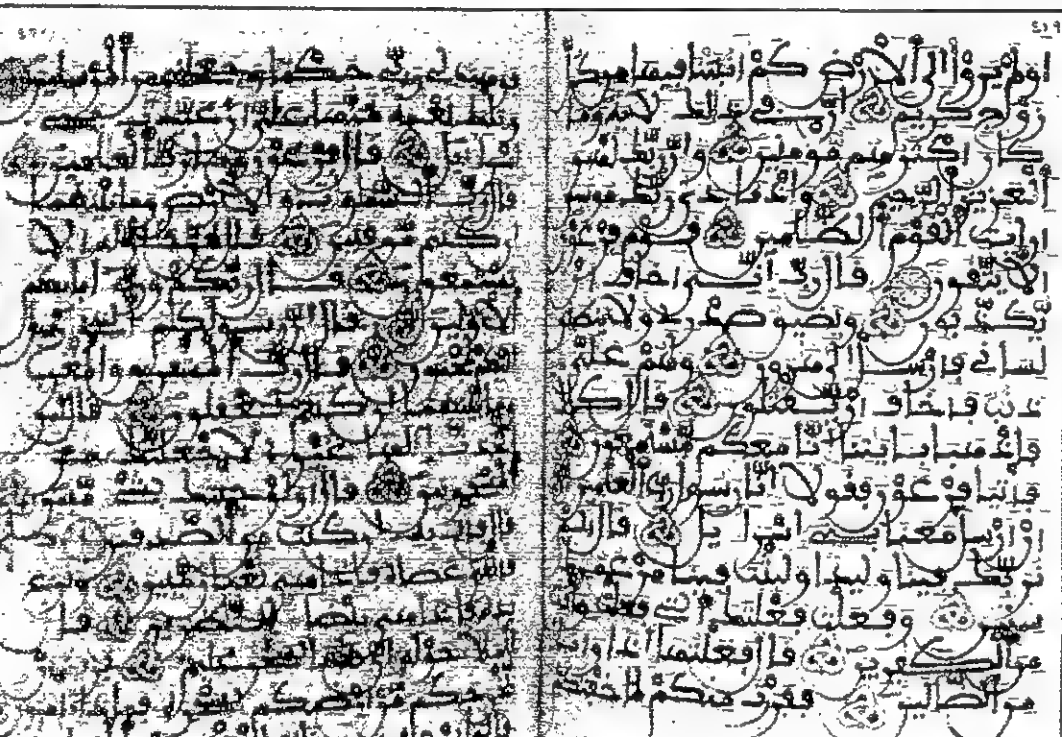 اولم يروا الى الارض كم انبتنا فيها من كل
زوج كريم ان في ذلك لاية وما
كان اكثرهم مومنين وان ربك لهو
العزيز الرحيم واذ نادى ربك موسى
ان ايت القوم الظلمين قوم فرعون
الا يتقون قال رب اني اخاف ان
يكذبون ويضيق صدري ولا ينطلق
لساني فارسل الى هرون ولهم علي
ذنب فاخاف ان يقتلون قال كلا
فاذهبا بايتنا انا معكم مستمعون
فاتيا فرعون فقولا انا رسول رب العلمين
ان ارسل معنا بني اسراءيل قال الم
نربك فينا وليدا ولبثت فينا من عمرك
سنين وفعلت فعلتك التي فعلت وانت
من الكفرين قال فعلتها اذا وانا
من الضالين ففررت منكم لما خفتكم
فوهب لي ربي حكما وجعلني من المرسلين
وتلك نعمة تمنها علي ان عبدت بني
اسراءيل قال فرعون وما رب العلمين
قال رب السموت والارض وما بينهما
ان كنتم موقنين قال لمن حوله الا
تستمعون قال ربكم ورب ابائكم
الاولين قال ان رسولكم الذي ارسل
اليكم لمجنون قال رب المشرق والمغرب
وما بينهما ان كنتم تعقلون قال لئن
اتخذت الها غيري لاجعلنك من
المسجونين قال اولو جئتك بشيء مبين
قال فات به ان كنت من الصدقين
فالقى عصاه فاذا هي ثعبان مبين ونزع
يده فاذا هي بيضاء للنظرين قال
للملا حوله ان هذا لسحر عليم يريد ان
يخرجكم من ارضكم بسحره فماذا تامرون